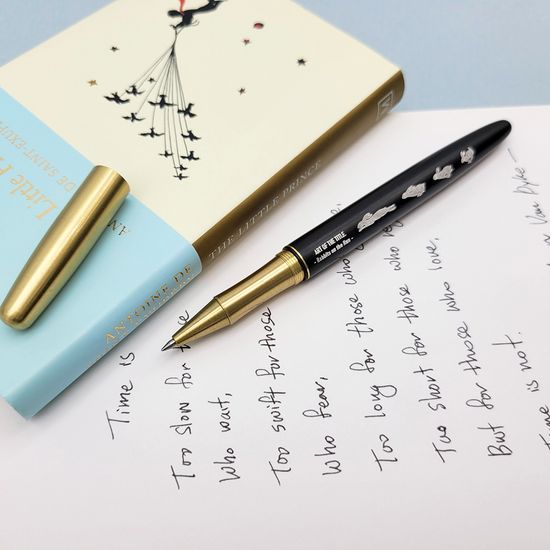 Little
DE
THE LITTLE PRINCE
ANTOINE DE
ART OF THE TITLE
- Rabbits on the Run -
Time is
Too slow for those
Who wait,
Too swift for those
Who fear,
Too long for those who
Too short for those who
But for those who love,
Time is not.
Van Dyke —